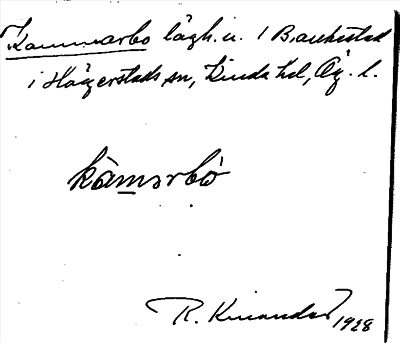 Kammarbo lägh. u. 1 Bankestad
i Hägerstads sn, Kinda hd, Ög. l.
kåmarbò
R. Kinander 1928